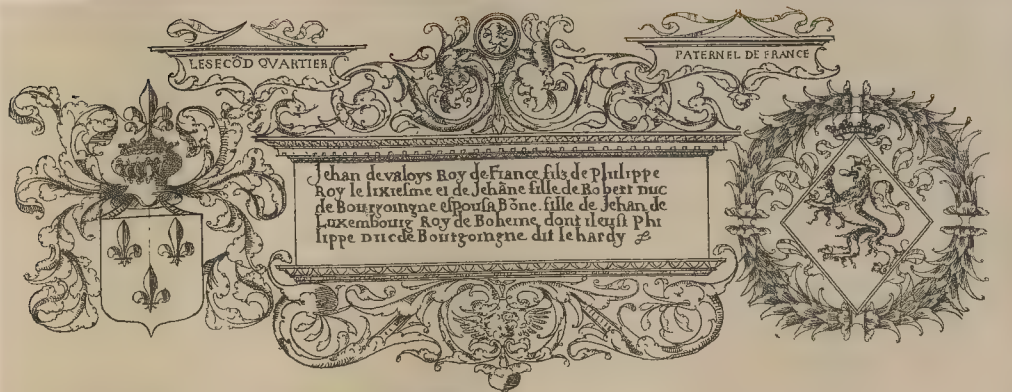 LE SECÕD QVARTIER
PATERNEL DE FRANCE
Jehan de valoys Roy de France filz de Philippe
Roy le sixiesme et de Jehãne fille de Robert Duc
de Bourgoingne espousa Bõne. fille de Jehan de
Luxembourg Roy de Boheme dont il eust Phi
lippe Duc de Bourgoingne dit le hardy